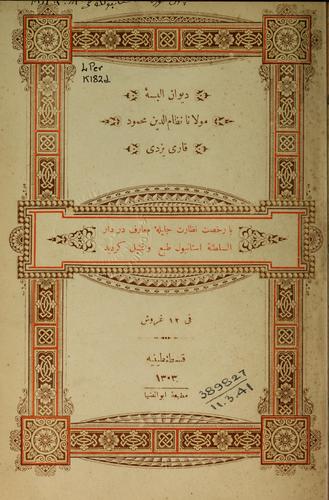 L Per
K182d
دیوان البسهٔ
مولانا نظام الدین محمود
قاری یزدی
با رخصت نظارت جلیلهٔ معارف در دار
السلطنهٔ استانبول طبع و تمثیل گردید
فی ۱۲ غروش
قسطنطینیه
۱۳۰۳
مطبعهٔ ابوالضیا
389827
11.3.41